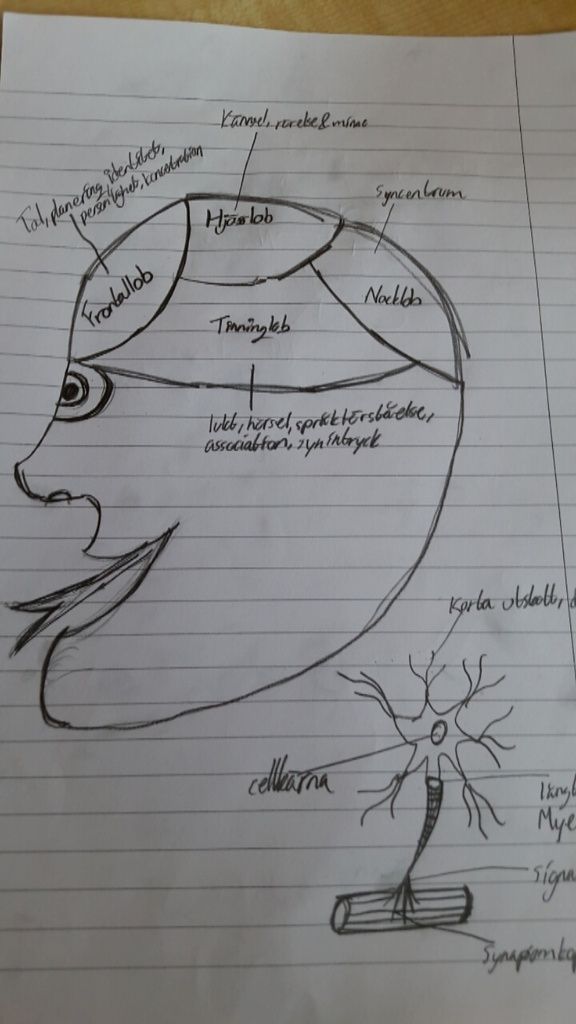 Känsel, rörelse & minne
Tal, planering, identitet,
personlighet, koncentration
Syncentrum
Hjässlob
Frontallob
Nacklob
Tinninglob
lukt, hörsel, språkförståelse,
association, synintryck
Korta utskott,
cellkärna
Mye
Signa
Synapsom